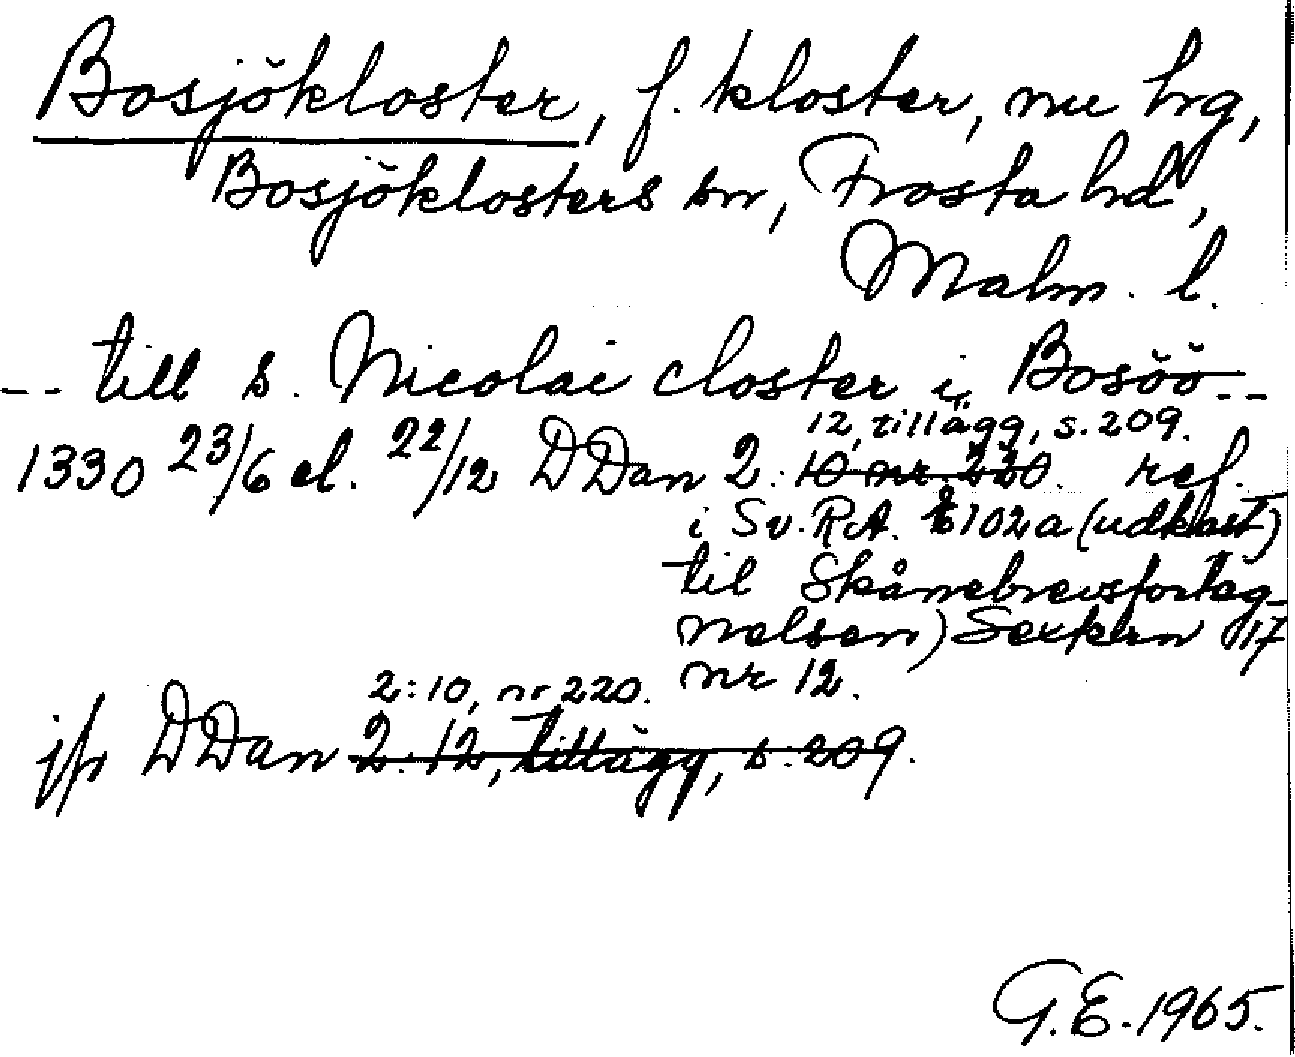 Bosjökloster, f. kloster, nu hg,
Bosjöklosters sn, Frosta hd,
Malm. l.
-- till s. Nicolai closter i Bosöö --
12, tillägg, s. 209.
1330 23/6 el. 22/12 DDan 2: 10 nr. 220. ref.
i Sv. R.A. E102a (udkast
til Skånebrevsforteg-
nelsen) Sexkern 17
nr 12.
2:10, nr 220.
jfr DDan 2:12, tillägg, s. 209.
G.E. 1965.